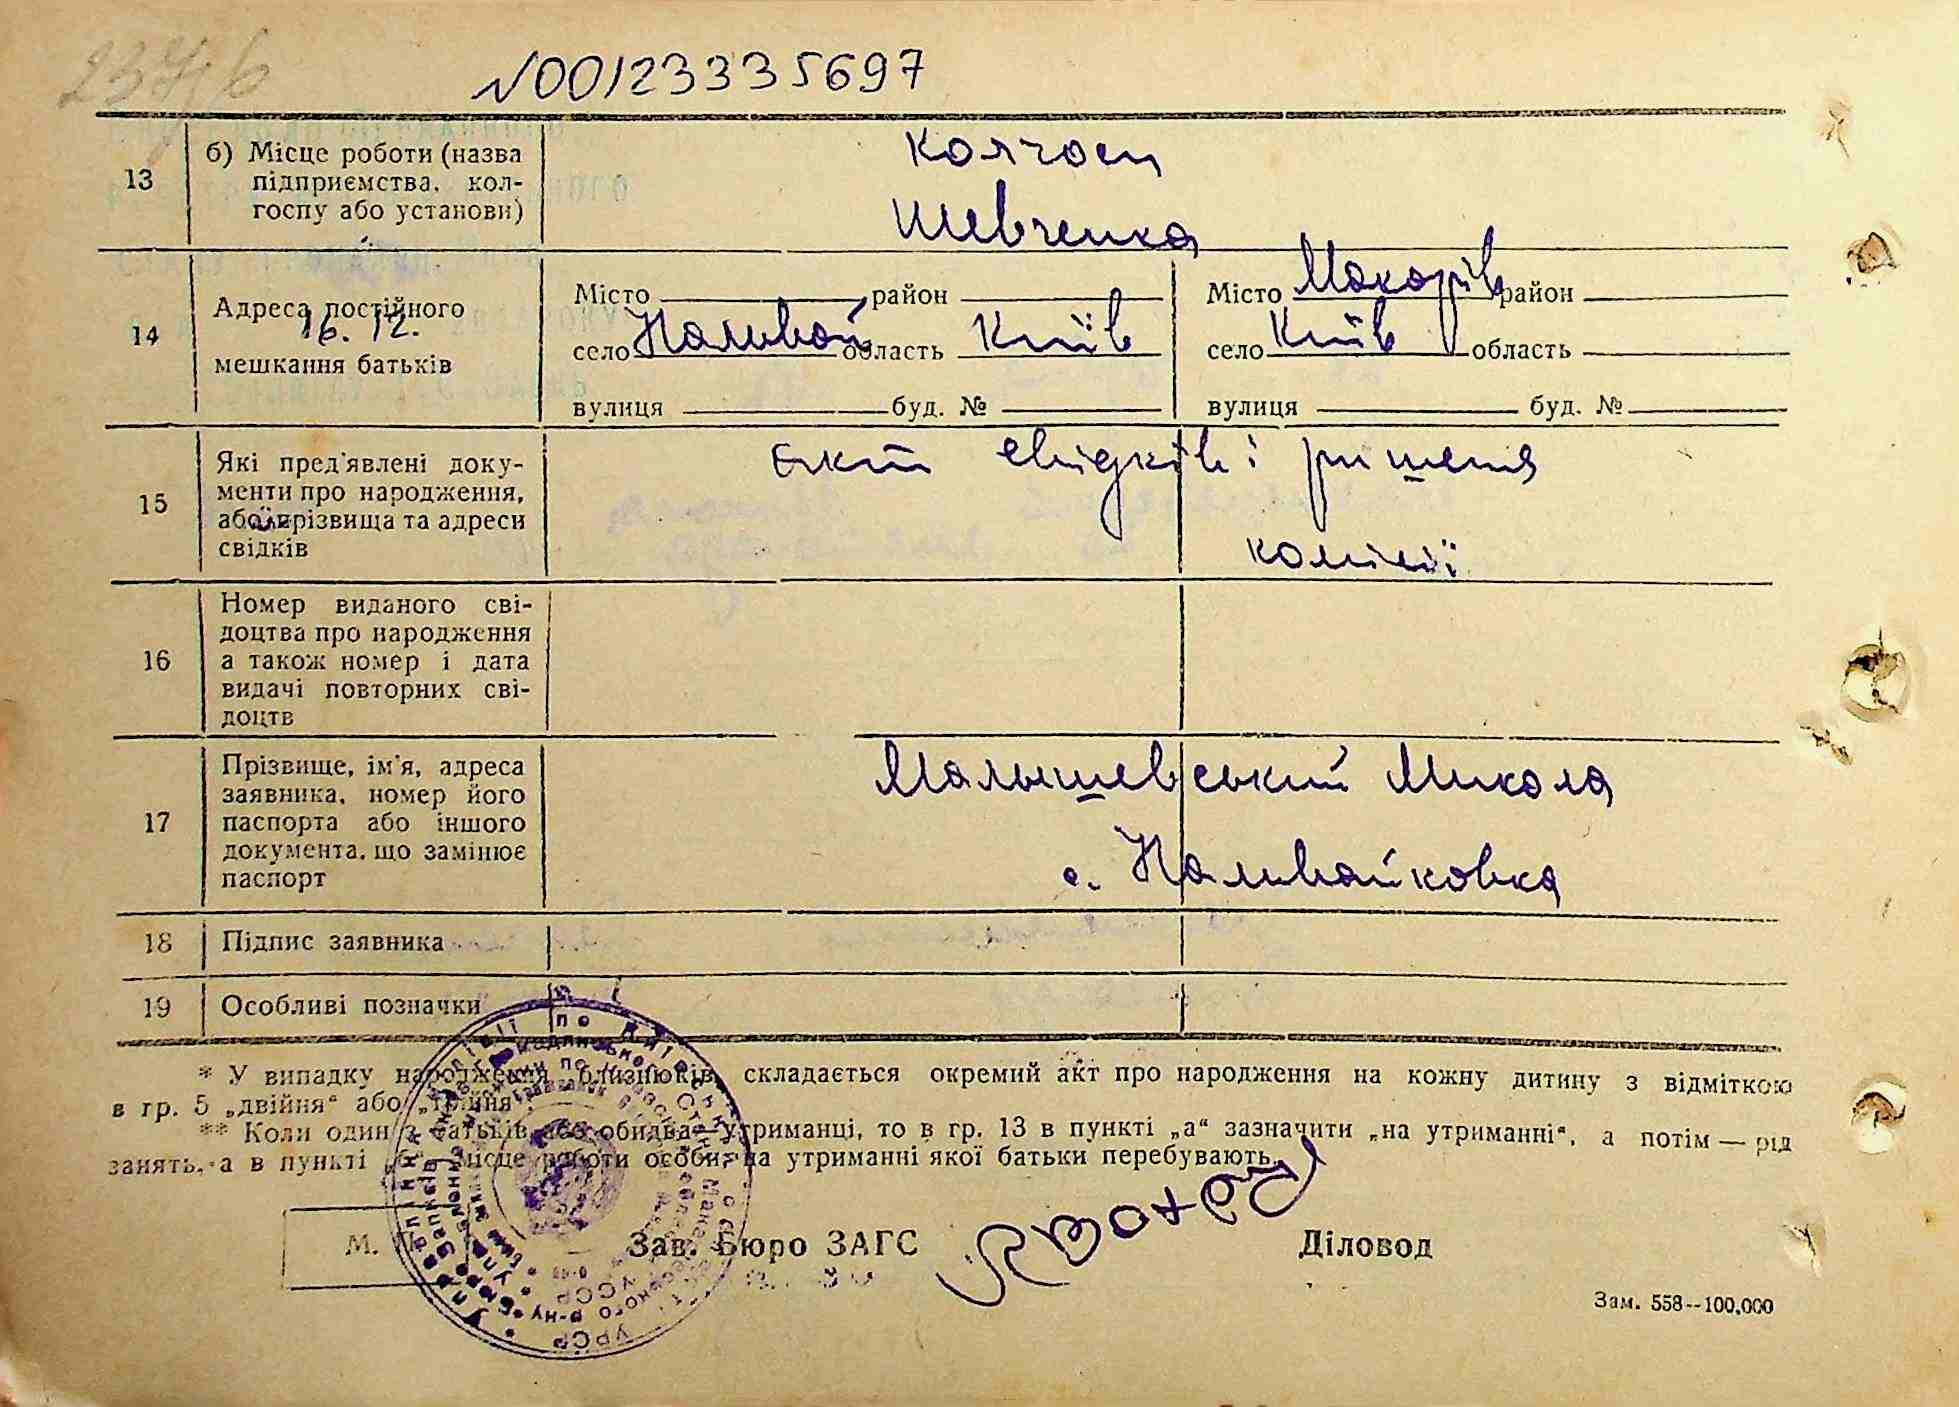 N00123335697
13
б) Місце роботи (назва
підприємства, кол-
госпу або установи)
колгосп
Шевченка
14
Адреса постійного
16. 12.
мешкання батьків
Місто район
село Наливай область Київ
вулиця буд. №
Місто Макарів район
село Київ область
вулиця буд. №
15
Які пред'явлені доку-
менти про народження,
або прізвища та адреси
свідків
свідків і
комісії
16
Номер виданого сві-
доцтва про народження
а також номер і дата
видачі повторних сві-
доцтв
17
Прізвище, ім'я, адреса
заявника, номер його
паспорта або іншого
документа, що замінює
паспорт
Малышевський Микола
с. Наливайковка
18
Підпис заявника
19
Особливі позначки
* У випадку народження близнюків, складається окремий акт про народження на кожну дитину з відміткою
в гр. 5 „двійня“ або „трійня“.
** Коли один з батьків або обидва—утриманці, то в гр. 13 в пункті „а“ зазначити „на утриманні“, а потім — рід
занять, а в пункті „б“ місце роботи особи, на утриманні якої батьки перебувають.
М. П.
Зав. Бюро ЗАГС
Діловод
Зам. 558--100,000